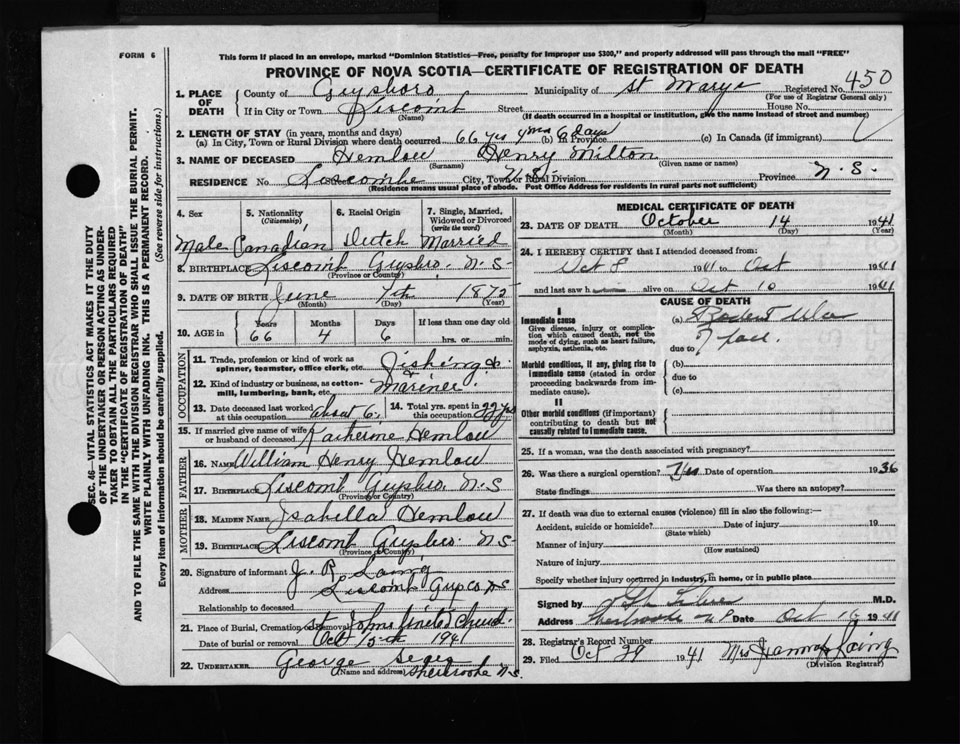 FORM 6
This form if placed in an envelope, marked "Dominion Statistics—Free, penalty for improper use $300," and properly addressed will pass through the mail "FREE"
PROVINCE OF NOVA SCOTIA—CERTIFICATE OF REGISTRATION OF DEATH
1. PLACE OF DEATH
County of Guysboro Municipality of St Marys Registered No. 450
(For use of Registrar General only)
If in City or Town Liscomb Street House No.
(Name) (If death occurred in a hospital or institution, give the name instead of street and number)
2. LENGTH OF STAY (in years, months and days)
(a) In City, Town or Rural Division where death occurred 66 yrs 4 mos 6 days (b) In Province (c) In Canada (if immigrant)
3. NAME OF DECEASED Hemlow Henry Milton
(Surname) (Given name or names)
RESIDENCE No. Street Liscombe City, Town or Rural Division N.S. Province N.S.
(Residence means usual place of abode. Post Office Address for residents in rural parts not sufficient)
4. Sex Male
5. Nationality (Citizenship) Canadian
6. Racial Origin Dutch
7. Single, Married, Widowed or Divorced (write the word) Married
8. BIRTHPLACE Liscomb Guysbro. N.S-
(Province or Country)
9. DATE OF BIRTH June 7th 1875
(Month) (Day) (Year)
10. AGE in Years 66 Months 4 Days 6 If less than one day old hrs. or min.
OCCUPATION
11. Trade, profession or kind of work as spinner, teamster, office clerk, etc. Fishing &
12. Kind of industry or business, as cotton-mill, lumbering, bank, etc. Marinee.
13. Date deceased last worked at this occupation about 6
14. Total yrs. spent in this occupation 22 yrs
15. If married give name of wife or husband of deceased Katherine Hemlow
FATHER
16. Name William Henry Hemlow
17. Birthplace Liscomb Guysbro. N.S
(Province or Country)
MOTHER
18. Maiden Name Isabella Hemlow
19. Birthplace Liscomb Guysbro. N.S-
(Province or Country)
20. Signature of informant J. R. Laing
Address Liscomb Guysco NS
Relationship to deceased
21. Place of Burial, Cremation or Removal St Johns United Church
Date of burial or removal Oct 15th 1941
22. UNDERTAKER George
(Name and address) Sherbrooke N.S.
MEDICAL CERTIFICATE OF DEATH
23. DATE OF DEATH October 14 1941
(Month) (Day) (Year)
24. I HEREBY CERTIFY that I attended deceased from:
Oct 8 1941 to Oct 1941
and last saw h alive on Oct 10 1941
CAUSE OF DEATH
I
Immediate cause
Give disease, injury or complication which caused death, not the mode of dying, such as heart failure, asphyxia, asthenia, etc.
(a) Rodent Ulcer
due to of face.
Morbid conditions, if any, giving rise to immediate cause (stated in order proceeding backwards from immediate cause).
(b)
due to
(c)
II
Other morbid conditions (if important) contributing to death but not causally related to immediate cause.
25. If a woman, was the death associated with pregnancy?
26. Was there a surgical operation? Yes Date of operation 1936
State findings Was there an autopsy?
27. If death was due to external causes (violence) fill in also the following:—
Accident, suicide or homicide? Date of injury 19
(State which)
Manner of injury
(How sustained)
Nature of injury
Specify whether injury occurred in industry, in home, or in public place
Signed by M.D.
Address Sherbrooke Date Oct 16 1941
28. Registrar's Record Number
29. Filed Oct 29 1941 Mrs Laing
(Division Registrar)
SEC. 46—VITAL STATISTICS ACT MAKES IT THE DUTY
OF THE UNDERTAKER OR PERSON ACTING AS UNDER-
TAKER TO OBTAIN ALL THE PARTICULARS REQUIRED
IN THE "CERTIFICATE OF REGISTRATION OF DEATH"
AND TO FILE THE SAME WITH THE DIVISION REGISTRAR WHO SHALL ISSUE THE BURIAL PERMIT.
WRITE PLAINLY WITH UNFADING INK. THIS IS A PERMANENT RECORD.
Every item of information should be carefully supplied. (See reverse side for instructions.)